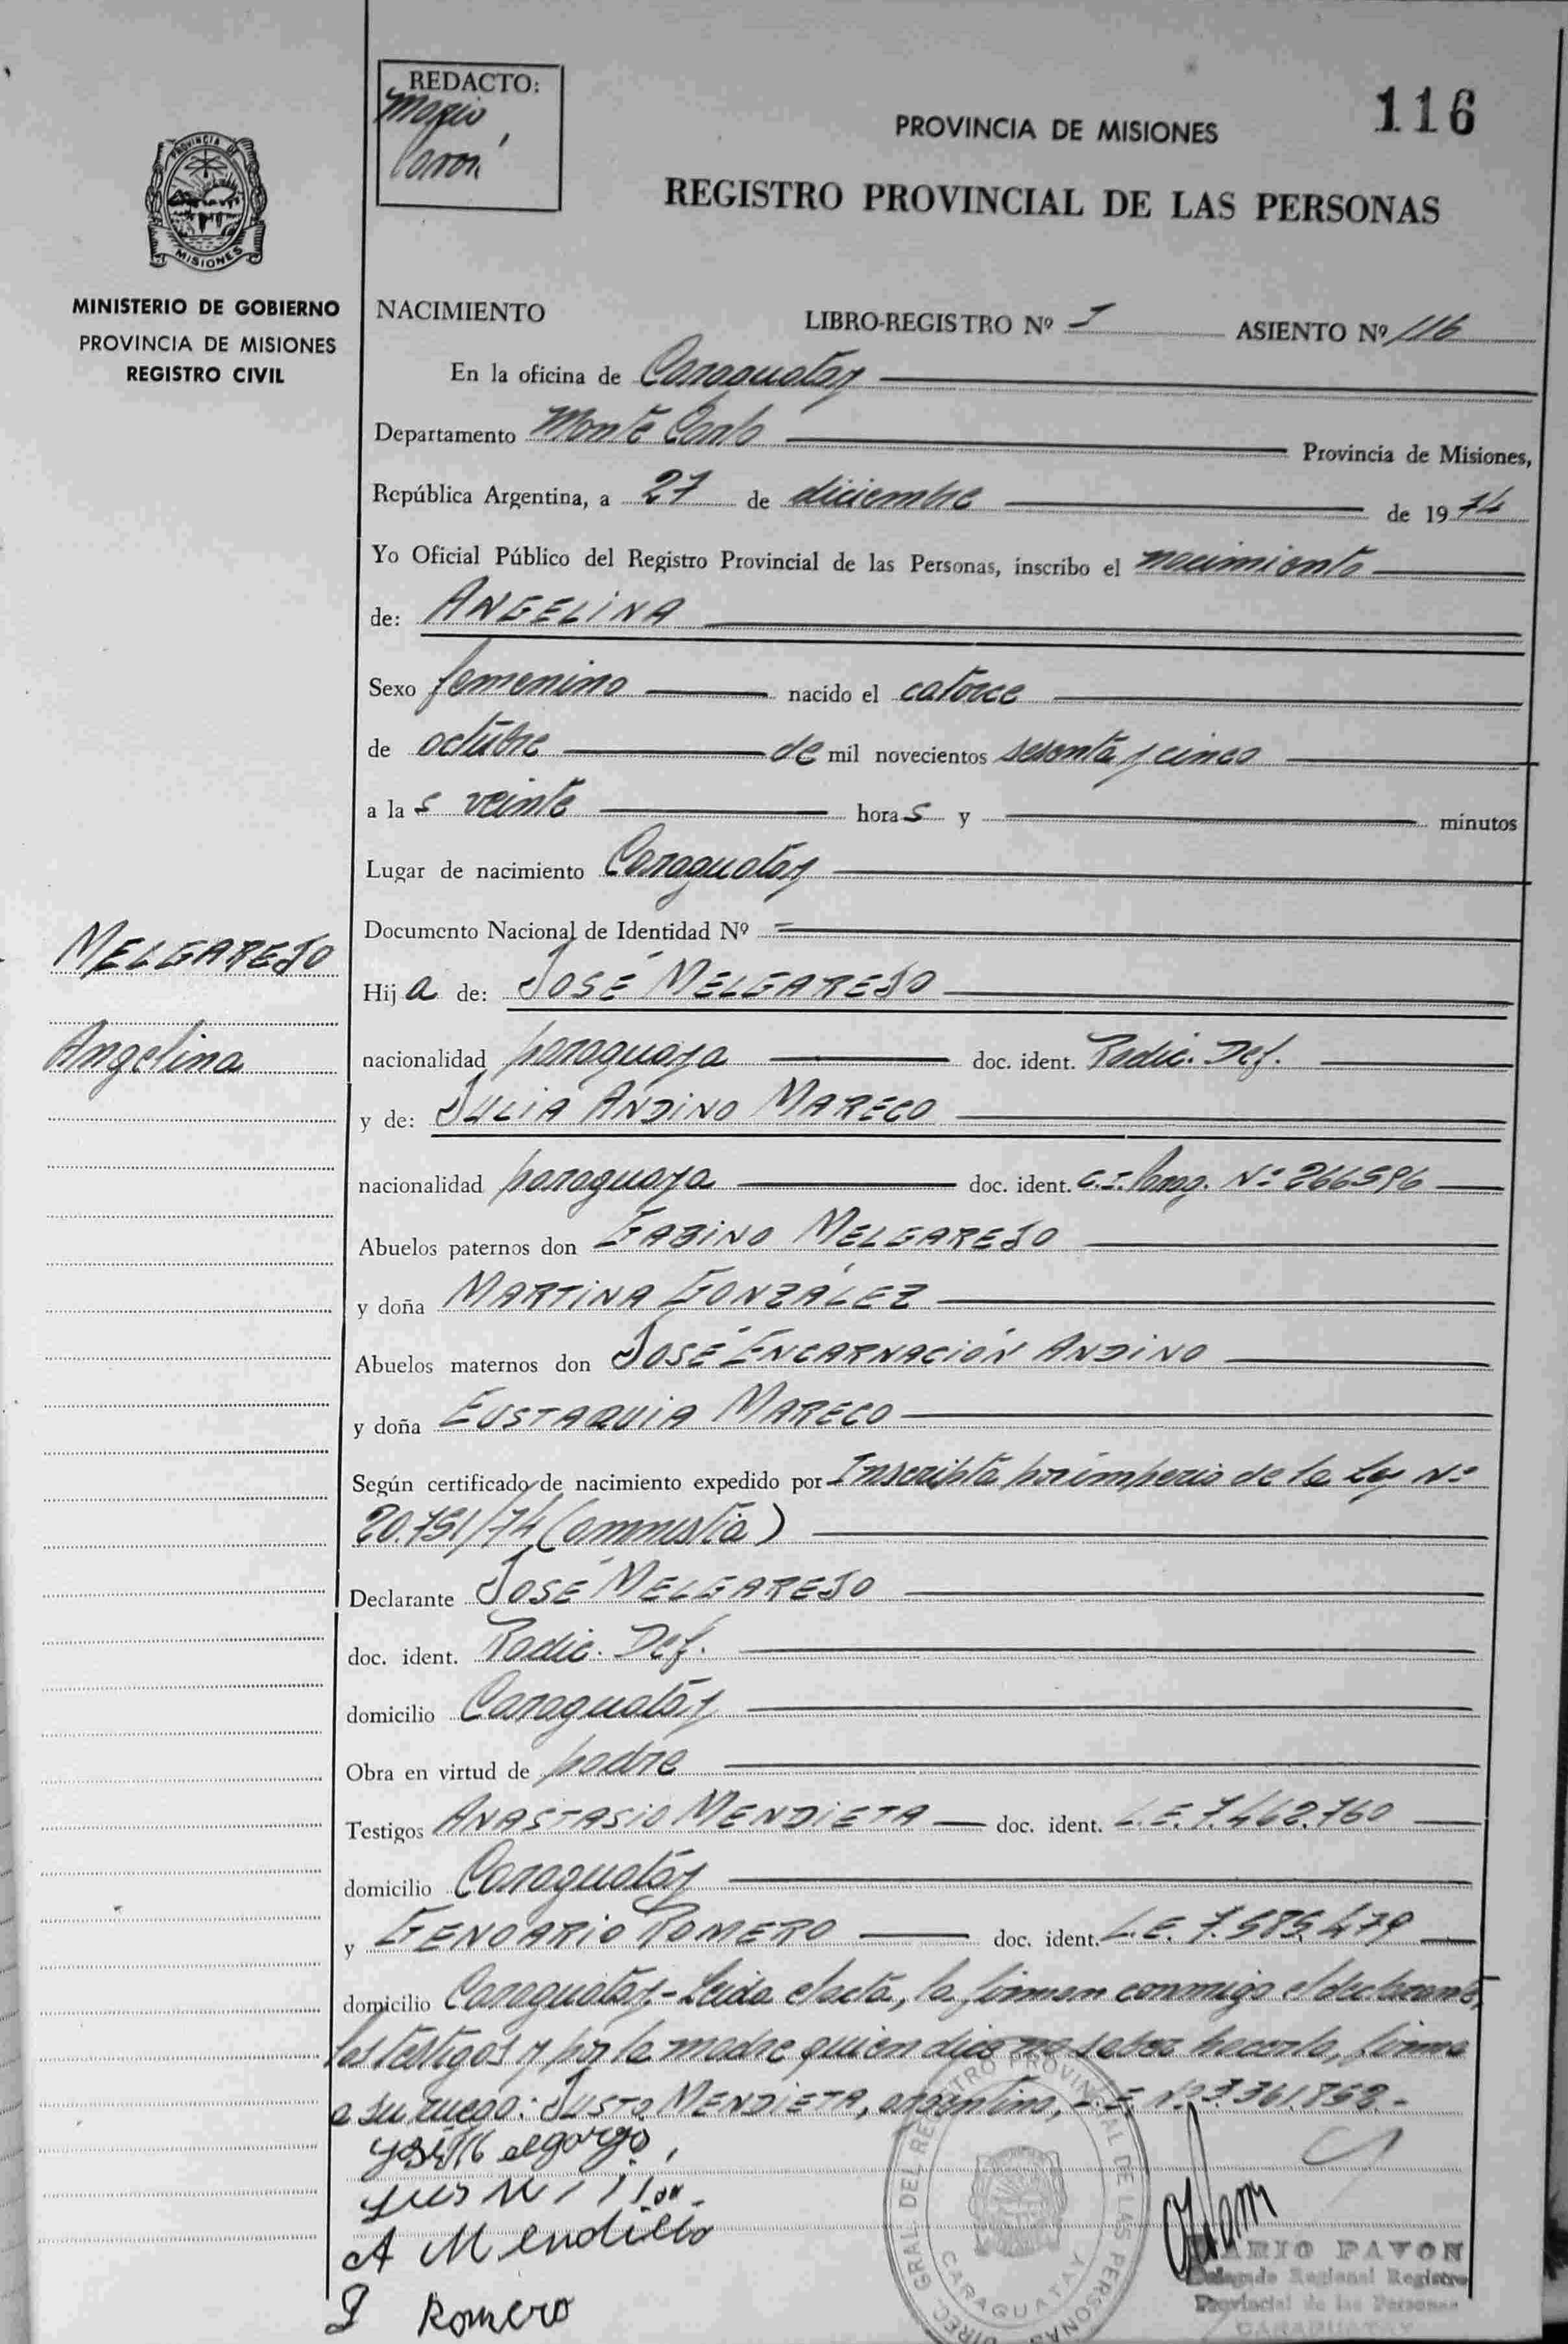 REDACTO:
Mario
116
PROVINCIA DE MISIONES
REGISTRO PROVINCIAL DE LAS PERSONAS
PROVINCIA DE
MISIONES
MINISTERIO DE GOBIERNO
PROVINCIA DE MISIONES
REGISTRO CIVIL
NACIMIENTO
LIBRO-REGISTRO Nº I ASIENTO Nº 116
En la oficina de Caraguatay
Departamento Monte Carlo Provincia de Misiones,
República Argentina, a 27 de diciembre de 1974
Yo Oficial Público del Registro Provincial de las Personas, inscribo el nacimiento
de: ANGELINA
Sexo femenino nacido el catorce
de octubre de mil novecientos sesenta y cinco
a las veinte horas y minutos
Lugar de nacimiento Caraguatay
Documento Nacional de Identidad Nº
MELGAREJO
Angelina
Hija de: JOSÉ MELGAREJO
nacionalidad paraguaya doc. ident. Radic. Def.
y de: JULIA ANDINO MARECO
nacionalidad paraguaya doc. ident. C.I. Parag. Nº 266596
Abuelos paternos don GABINO MELGAREJO
y doña MARTINA GONZÁLEZ
Abuelos maternos don JOSÉ ENCARNACIÓN ANDINO
y doña EUSTAQUIA MARECO
Según certificado de nacimiento expedido por Inscripta por imperio de la Ley Nº
20.751/74 (amnistía)
Declarante JOSÉ MELGAREJO
doc. ident. Radic. Def.
domicilio Caraguatáy
Obra en virtud de padre
Testigos ANASTASIO MENDIETA doc. ident. L.E. 7.462.760
domicilio Caraguatáy
y GENOARIO ROMERO doc. ident. L.E. 7.585.479
domicilio Caraguatay.- Leída el acta, la firman conmigo el declarante,
los testigos y por la madre quien dijo no saber hacerlo, firma
a su ruego: JUSTO MENDIETA, argentino, L.E. Nº 3.361.852.-
A Mendieta
Romero
DIREC. GRAL. DEL REGISTRO PROVINCIAL DE LAS PERSONAS
CARAGUATAY
MARIO PAVON
Delegado Regional Registro
Provincial de las Personas
CARAGUATAY